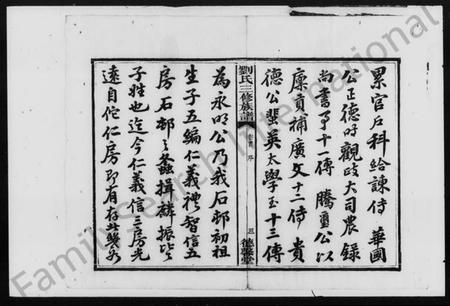 累官戶科給諫侍　華國
公正德時觀政大司農錄
尚書事十一傳　騰璽公以
廩貢補廣文十二傳　貴
德公蜚英太學至十三傳
劉氏三修族譜
序
三
為永明公乃我石邨初祖
生子五編仁義禮智信五
房石邨之螽揖麟振皆
子姓也迄今仁義信三房光
遠自佗仁房即有存此幾如
FamilySearch International